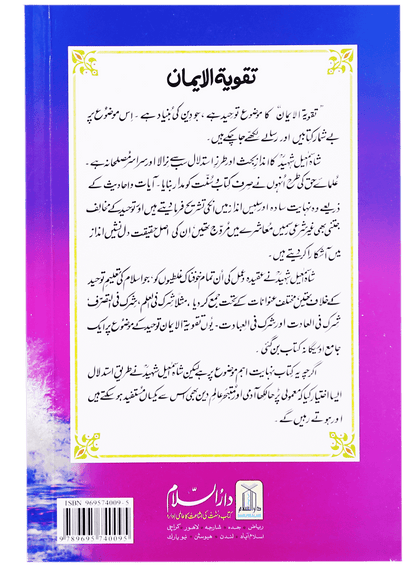 تقویۃ الایمان
”تقویۃ الایمان“ کا موضوع توحید ہے، جو دین کی بنیاد ہے۔ اِس موضوع پر
بے شمار کتابیں اور رسالے لکھے جا چکے ہیں۔
شاہ اسمٰعیل شہیدؒ کا اندازِ بحث اور طرزِ استدلال سب سے نرالا اور سراسر مصلحانہ ہے۔
علمائے حق کی طرح اُنہوں نے صرف کتاب و سُنّت کو مدار بنایا۔ آیات و احادیث کے
ذریعے وہ نہایت سادہ اور سلیس انداز میں اُنکی تشریح فرما دیتے ہیں اور توحید کے مخالف
جتنی بھی غیر شرعی رسمیں معاشرے میں مُروّج تھیں اُن کی اصل حقیقت دل نشیں انداز
میں آشکارا کر دیتے ہیں۔
شاہ اسمٰعیل شہیدؒ نے عقیدہ و عمل کی اُن تمام خوفناک غلطیوں کو جو اسلام کی تعلیمِ توحید
کے خلاف تھیں مختلف عنوانات کے تحت جمع کر دیا، مثلاً شرک فی العلم، شرک فی التصرف
شرک فی العادت اور شرک فی العبادت۔ یوں تقویۃ الایمان توحید کے موضوع پر ایک
جامع اور یگانہ کتاب بن گئی۔
اگرچہ یہ کتاب نہایت اہم موضوع پر ہے لیکن شاہ اسمٰعیل شہیدؒ نے طریقِ استدلال
ایسا اختیار کیا کہ معمولی پڑھا لکھا آدمی اور متبحر عالمِ دین بھی اس سے یکساں مُستفید ہو سکتے ہیں
اور ہوتے رہیں گے۔
دارُالسّلام
کتاب و سُنّت کی اشاعت کا عالمی ادارہ
ریاض جدہ شارجہ لاہور کراچی
اسلام آباد لندن ہیوسٹن نیویارک
دارالسلام
DARUSSALAM
ISBN 969574009-5
9789695740095